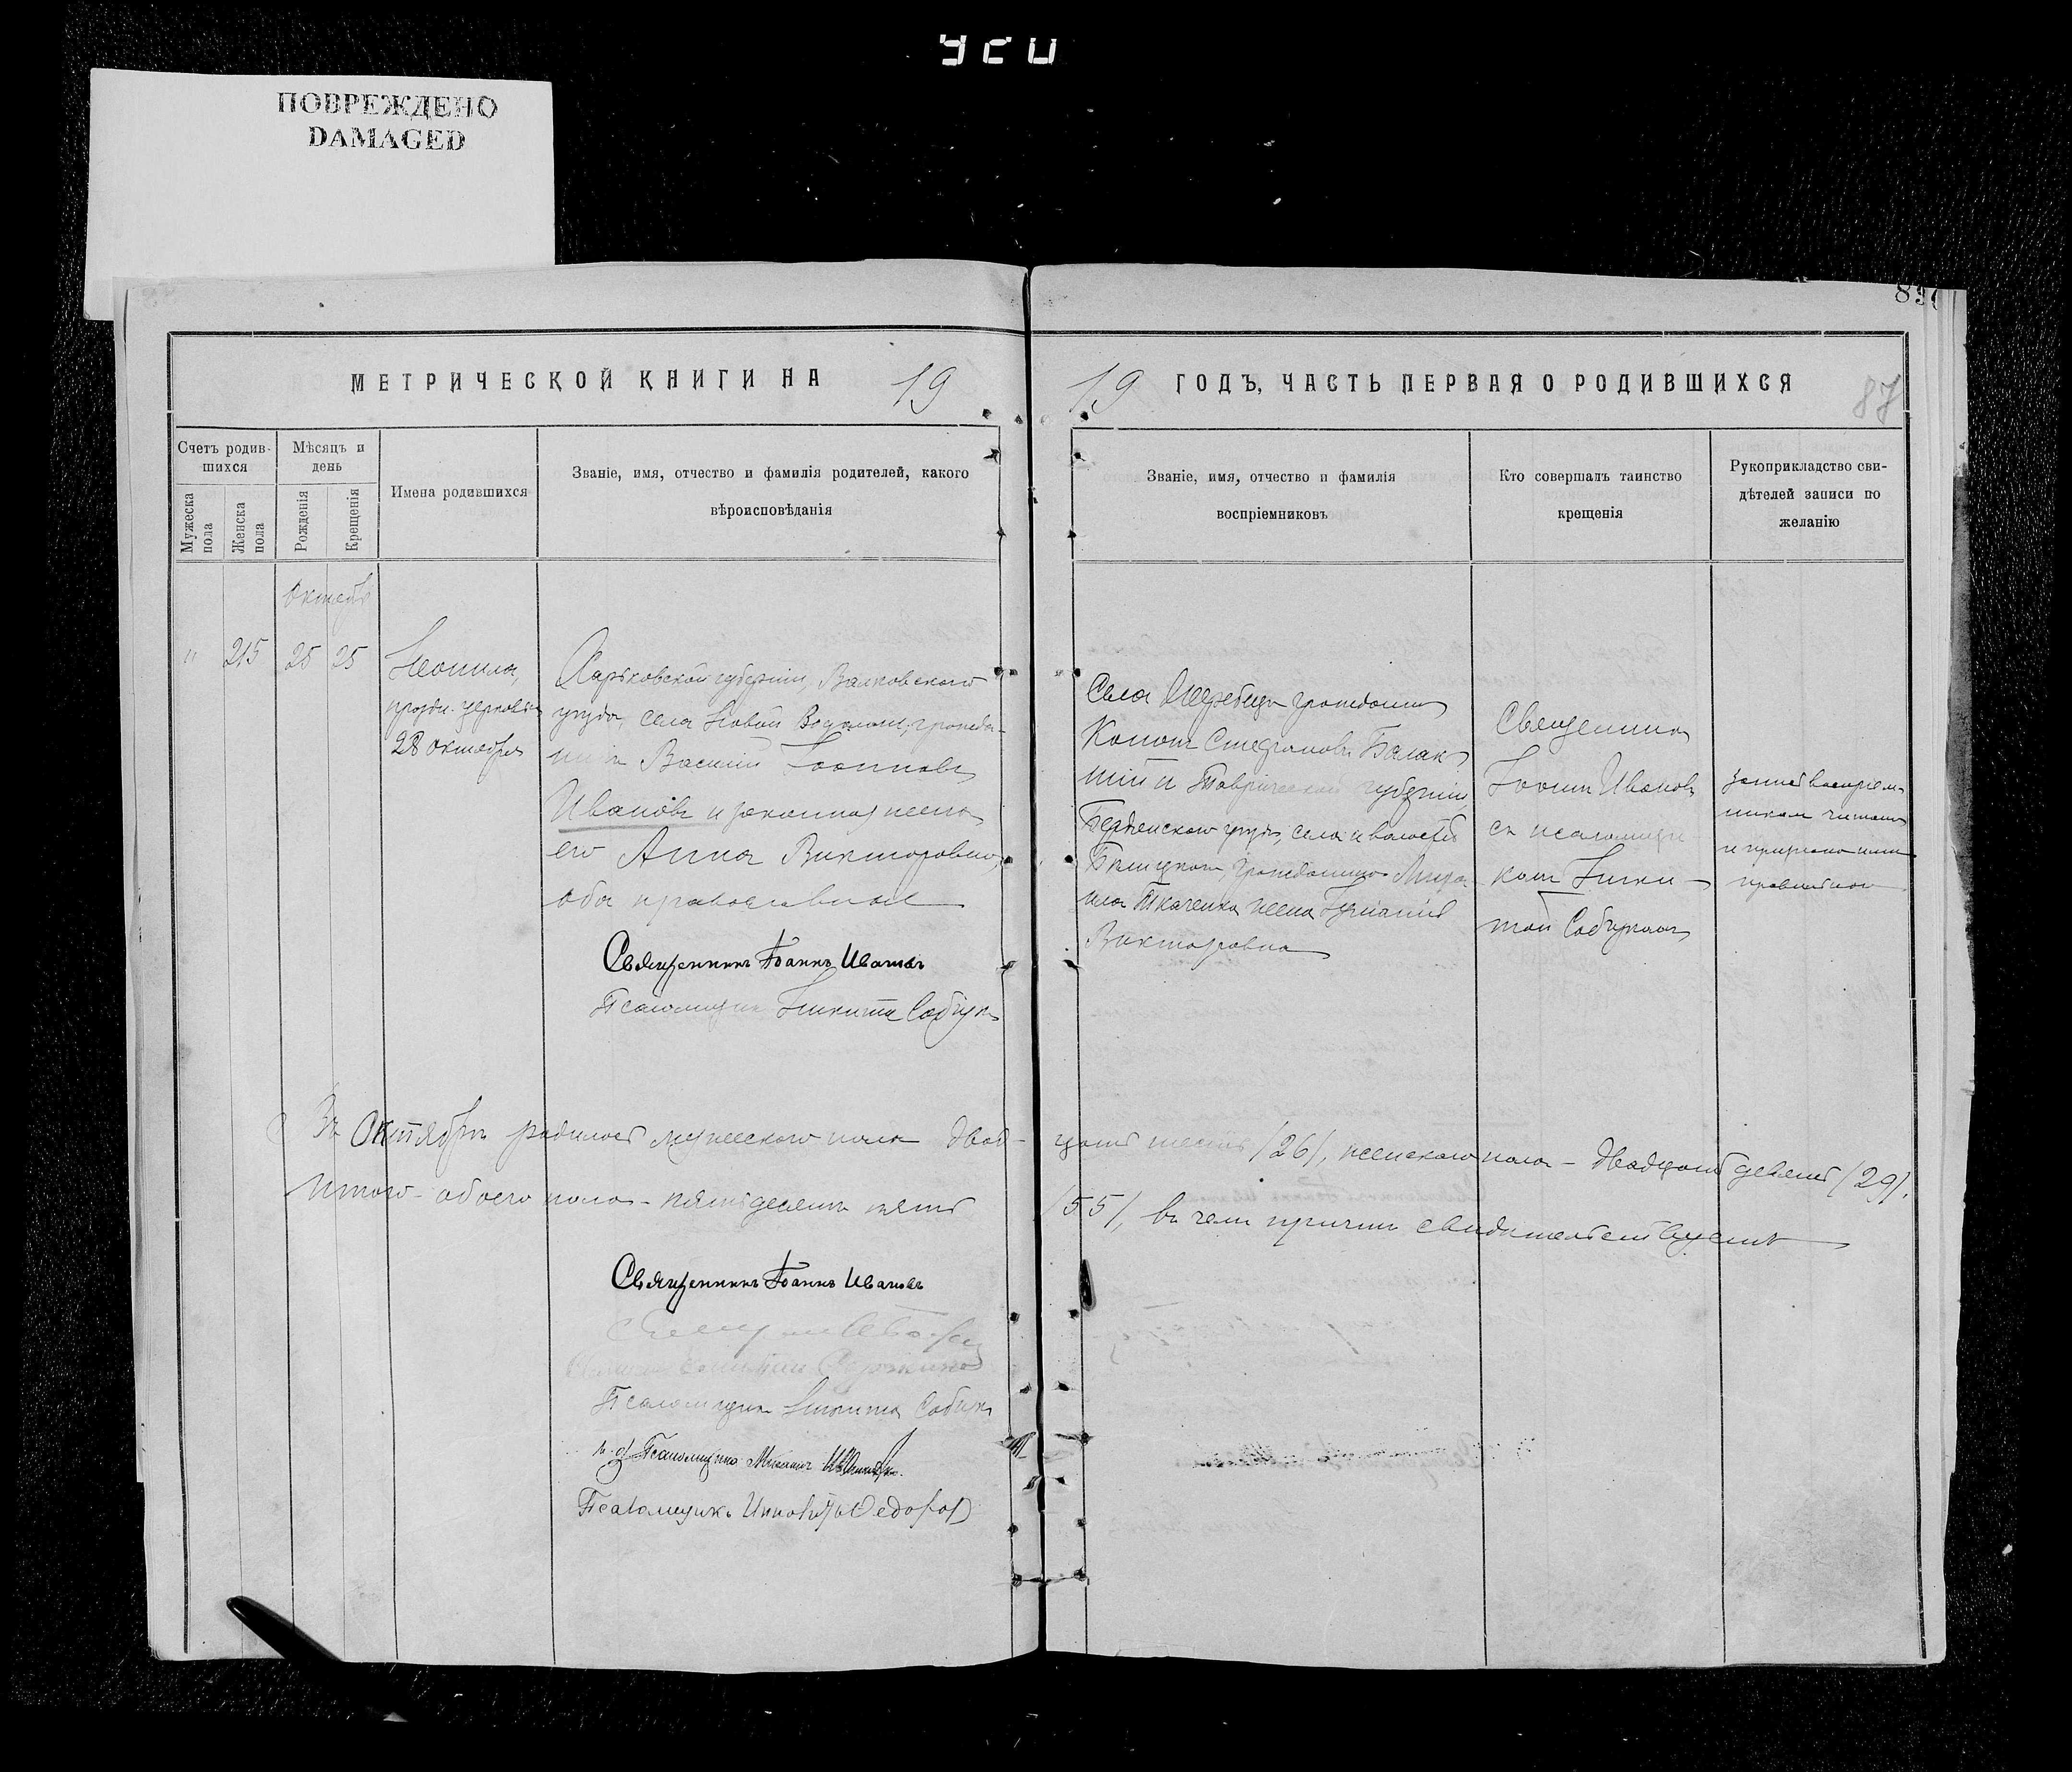 УСИ
ПОВРЕЖДЕНО
DAMAGED
897
МЕТРИЧЕСКОЙ КНИГИ НА 19
19 ГОДЪ, ЧАСТЬ ПЕРВАЯ О РОДИВШИХСЯ
87
Счетъ родив-
шихся
Мужеска
пола
Женска
пола
Мѣсяцъ и
день
Рожденія
Крещенія
Имена родившихся
Званіе, имя, отчество и фамилія родителей, какого
вѣроисповѣданія
Званіе, имя, отчество и фамилія
воспріемниковъ
Кто совершалъ таинство
крещенія
Рукоприкладство сви-
дѣтелей записи по
желанію
Октябрь
" 215 25 25
Неонила,
праздн. церковью
28 октября
Харьковской губерніи, Валковскаго
уѣзда, села Новой Водолаги, гражда-
нинъ Василій Іоанновъ
Ивановъ и законная жена
его Анна Викторовна,
оба православные
Священникъ Іоаннъ Ивановъ
Псаломщикъ Никита Собчукъ
Села Жеребца гражданинъ
Стефановъ
и Таврической губерніи,
Бердянскаго уѣзда, села и волости
гражданина
Ткаченка жена
Викторовна
Священникъ
Іоаннъ Ивановъ
съ псаломщи-
комъ Ники-
той Собчукомъ
Въ Октябрѣ родилось мужескаго пола двад-
цать шесть /26/, женскаго пола - двадцать девять /29/.
Итого - обоего пола - пятьдесятъ пять
/55/, въ чемъ причтъ свидѣтельствуетъ
Священникъ Іоаннъ Ивановъ
Псаломщикъ Никита Собчукъ
и. д. Псаломщика Михаилъ
Псаломщикъ Федоровъ